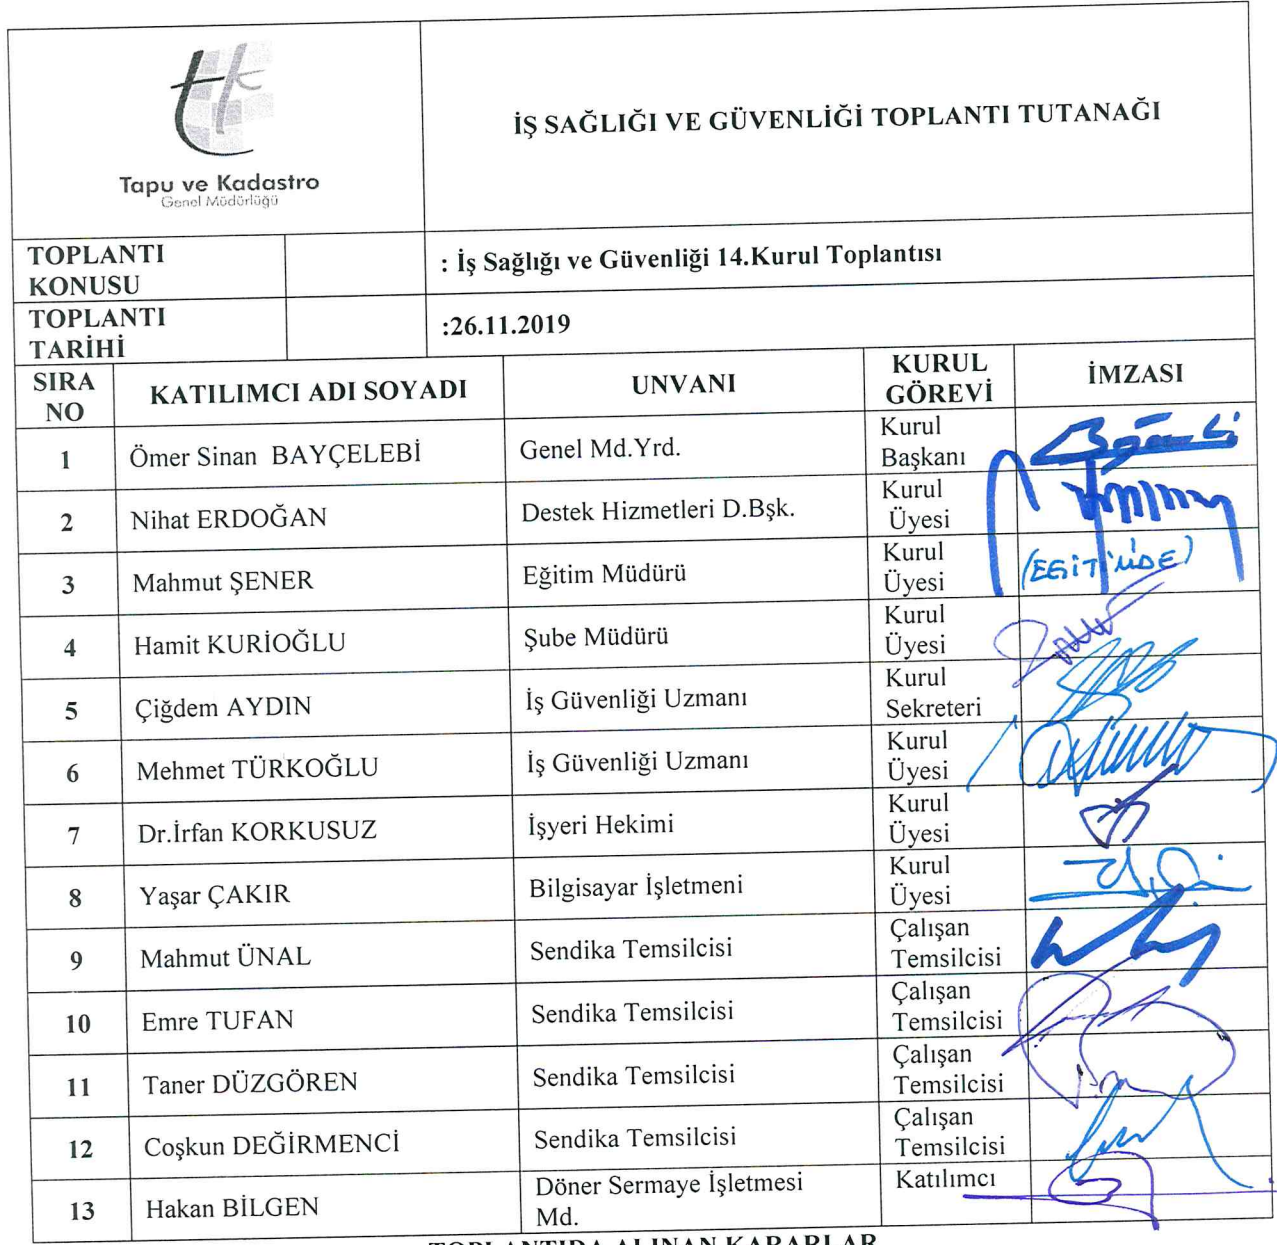 Tapu ve Kadastro
Genel Müdürlüğü
İŞ SAĞLIĞI VE GÜVENLİĞİ TOPLANTI TUTANAĞI
TOPLANTI
KONUSU
: İş Sağlığı ve Güvenliği 14.Kurul Toplantısı
TOPLANTI
TARİHİ
:26.11.2019
SIRA
NO
KATILIMCI ADI SOYADI
UNVANI
KURUL
GÖREVİ
İMZASI
1
Ömer Sinan BAYÇELEBİ
Genel Md.Yrd.
Kurul
Başkanı
2
Nihat ERDOĞAN
Destek Hizmetleri D.Bşk.
Kurul
Üyesi
3
Mahmut ŞENER
Eğitim Müdürü
Kurul
Üyesi
(EĞİTİMDE)
4
Hamit KURİOĞLU
Şube Müdürü
Kurul
Üyesi
5
Çiğdem AYDIN
İş Güvenliği Uzmanı
Kurul
Sekreteri
6
Mehmet TÜRKOĞLU
İş Güvenliği Uzmanı
Kurul
Üyesi
7
Dr.İrfan KORKUSUZ
İşyeri Hekimi
Kurul
Üyesi
8
Yaşar ÇAKIR
Bilgisayar İşletmeni
Kurul
Üyesi
9
Mahmut ÜNAL
Sendika Temsilcisi
Çalışan
Temsilcisi
10
Emre TUFAN
Sendika Temsilcisi
Çalışan
Temsilcisi
11
Taner DÜZGÖREN
Sendika Temsilcisi
Çalışan
Temsilcisi
12
Coşkun DEĞİRMENCİ
Sendika Temsilcisi
Çalışan
Temsilcisi
13
Hakan BİLGEN
Döner Sermaye İşletmesi
Md.
Katılımcı
TOPLANTIDA ALINAN KARARLAR